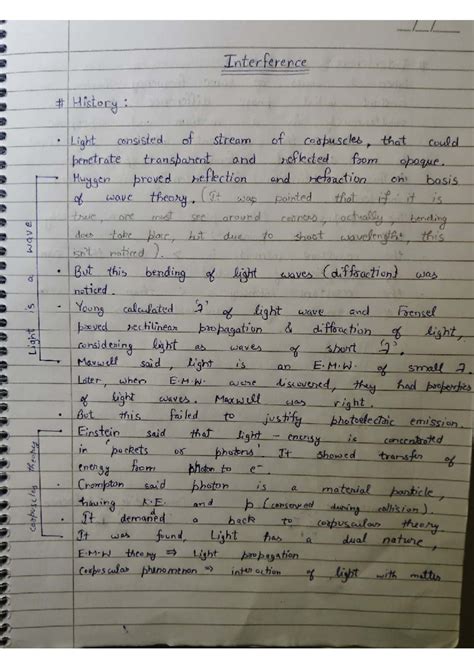 Interference
# History :
• Light consisted of stream of corpuscles, that could
penetrate transparent and reflected from opaque.
• Huygen proved reflection and refraction on basis
of wave theory. (It was pointed that if it is
true, one must see around corners, actually bending
does take place, but due to short wavelengths, this
isn't noticed).
• But this bending of light waves (diffraction) was
noticed.
• Young calculated 'λ' of light wave and Fresnel
proved rectilinear propagation & diffraction of light,
considering light as waves of short 'λ'.
• Maxwell said, light is an E.M.W. of small λ.
Later, when E.M.W. were discovered, they had properties
of light waves. Maxwell was right.
• But this failed to justify photoelectric emission.
• Einstein said that light-energy is concentrated
in 'packets or photons'. It showed transfer of
energy from photon to e⁻.
• Crompton said photon is a material particle,
having K.E. and p (conserved during collision).
• It demanded a back to corpuscular theory
• It was found, Light has a dual nature,
E.M.W theory ⇒ Light propagation
Corpuscular phenomenon ⇒ interaction of light with matter
Light is a wave
corpuscles theory